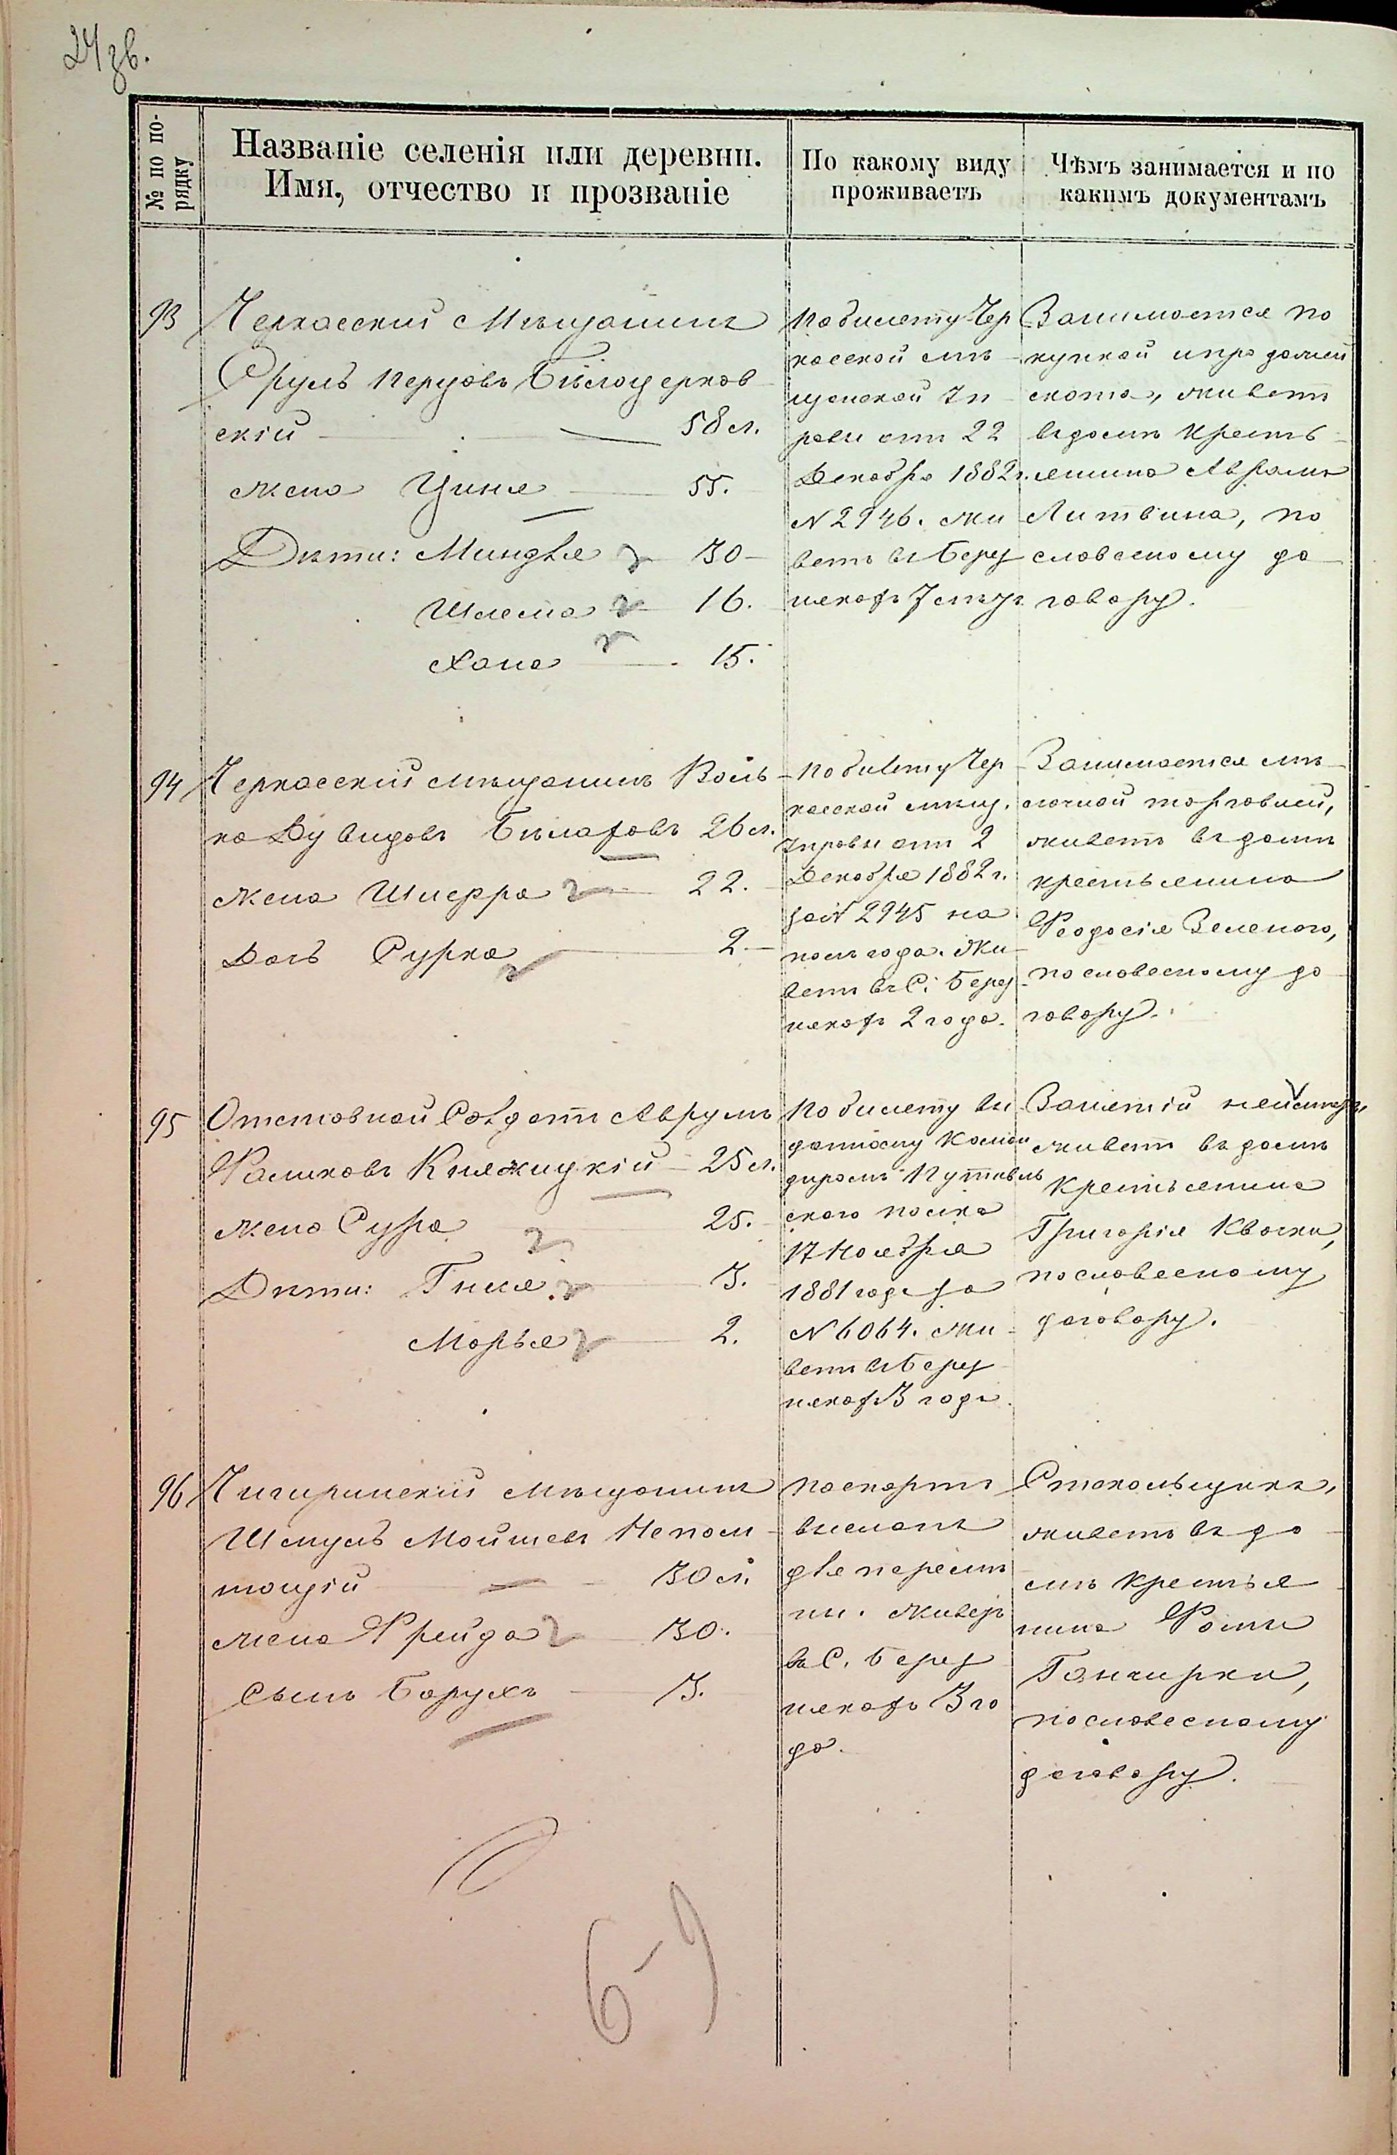 24 зв.
№ по по-
рядку
Названіе селенія или деревни.
Имя, отчество и прозваніе
По какому виду
проживаетъ
Чѣмъ занимается и по
какимъ документамъ
93
Черкасский Мѣщанинъ
Сруль Перцовъ Бѣлоцерков
скій — 58 л.
жена Циня — 55.
Дѣти: Миндля 30 —
Шлема 16.
Хана — 15.
По билету Чер
касской мѣ
щанской Уп
равы отъ 22
Декабря 1882 г.
N 2946. жи
ветъ въ Берез
някахъ
Занимается по
купкой и продажей
скота, живетъ
въ домѣ Кресть
янина Аврама
Литвина, по
словесному до
говору.
94
Черкасскій мѣщанинъ Воль
ко Дувидовъ Бѣлафовъ 26 л.
жена Шифра — 22.
Дочь Сурка — 2 —
По билету Чер
касской мѣщ.
Управы отъ 2
Декабря 1882 г.
за N 2945 на
полъ года. Жи
ветъ въ С. Берез
някахъ 2 года.
Занимается мѣ
лочной торговлей,
живетъ въ домѣ
крестьянина
Феодосія Зеленого,
по словесному до
говору.
95
Отставной Солдатъ Аврумъ
Фалиховъ Княжицкій — 25 л.
жена Сура 25.
Дѣти: Гися — 3.
Марья — 2.
По билету вы
данному Коман
диромъ Путивль
скаго полка
17 Ноября
1881 года за
N 6064. жи
ветъ въ Берез
някахъ 3 года.
Занятій неимѣетъ,
живетъ въ домѣ
Крестьянина
Григорія Квочки,
по словесному
договору.
96
Чигиринскій мѣщанинъ
Шмуль Мойшевъ Непом
нющій — 30 л.
жена Фрейда 30.
Сынъ Борухъ — 3.
Паспортъ
высланъ
для перемѣ
ны. живетъ
въ С. Берез
някахъ 3 го
да.
Стекольщикъ,
живетъ въ до
мѣ Крестья
нина Фомы
Ганчирки,
по словесному
договору.
6-9